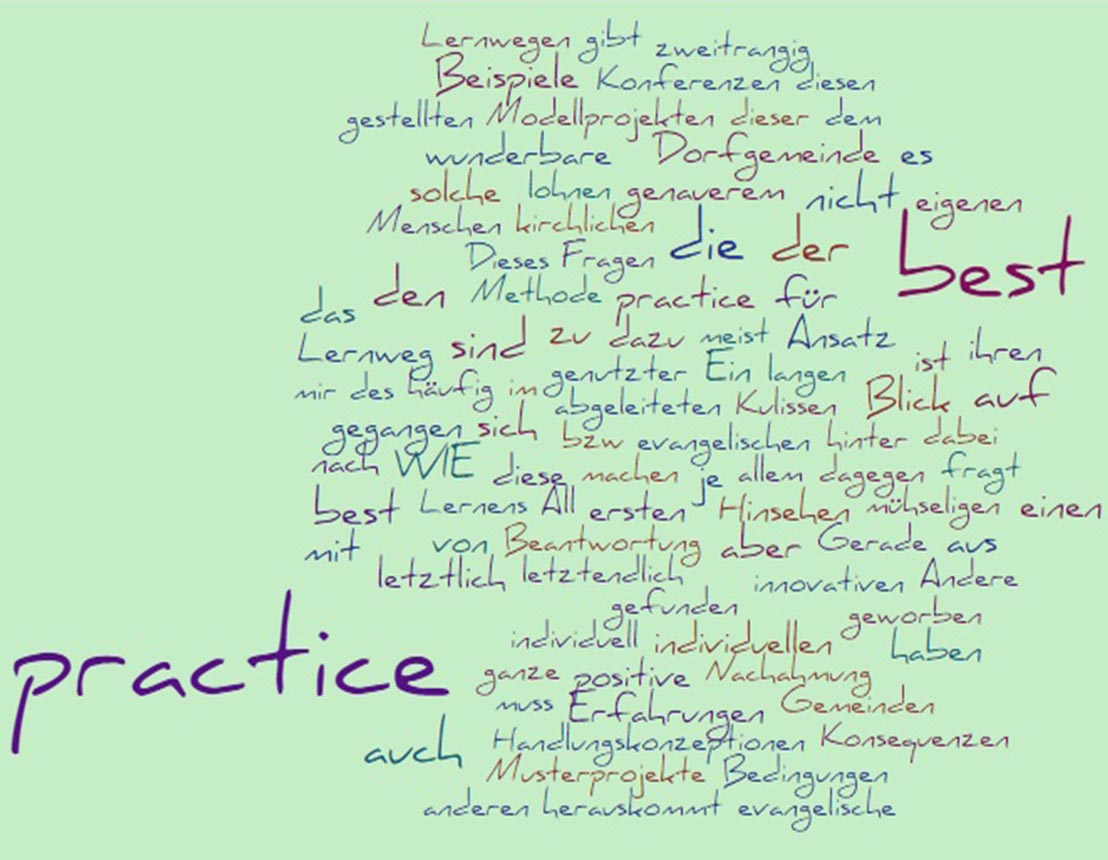 Lernwegen gibt zweitrangig
Beispiele Konferenzen diesen
gestellten Modellprojekten dieser dem
wunderbare Dorfgemeinde es
solche lohnen genauerem nicht eigenen
Menschen kirchlichen
Dieses Fragen die der best
das den Methode practice für
Lernweg sind zu dazu meist Ansatz ist ihren
mir des häufig im genutzter Ein langen
abgeleiteten Kulissen Blick auf
gegangen sich bzw evangelischen hinter dabei
nach WIE diese machen je allem dagegen fragt
best Lernens All ersten Hinsehen mühseligen einen
mit von Beantwortung aber Gerade aus
letztlich letztendlich innovativen Andere
gefunden geworben
individuell individuellen haben
practice ganze positive Nachahmung
muss Erfahrungen Gemeinden
auch Handlungskonzeptionen Konsequenzen
Musterprojekte Bedingungen
anderen herauskommt evangelische